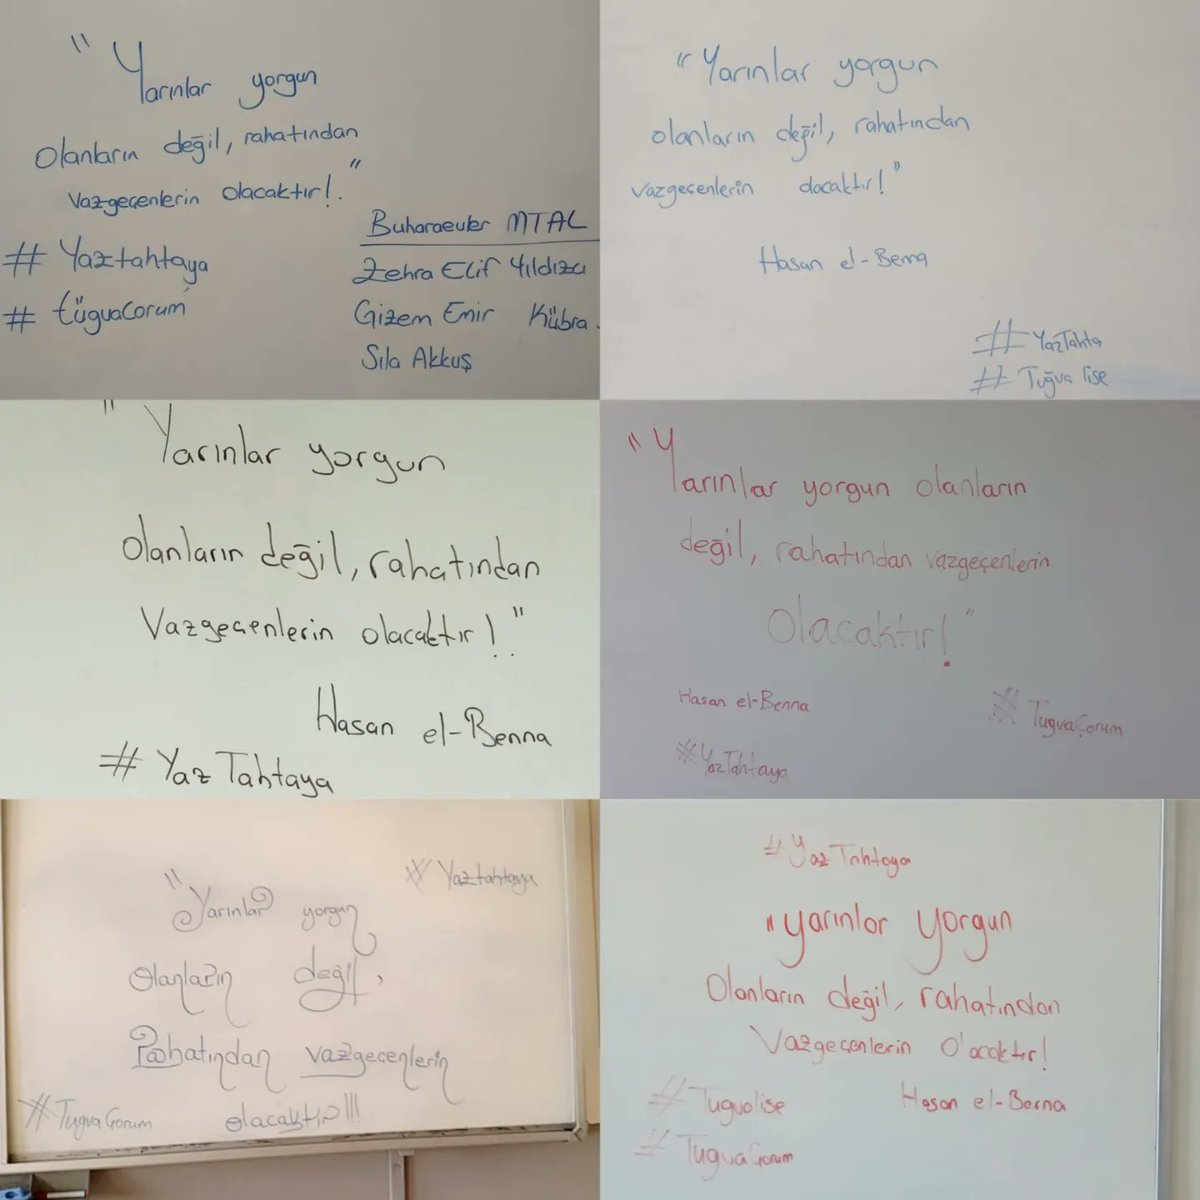 "Yarınlar yorgun
olanların değil, rahatından
vazgeçenlerin olacaktır!."
# Yaztahtaya
# tügvaCorum
Buharaevler MTAL
Zehra Elif Yıldızcı
Gizem Emir Kübra
Sıla Akkuş
"Yarınlar yorgun
olanların değil, rahatından
vazgeçenlerin olacaktır!"
Hasan el-Benna
# YazTahta
# Tuğva lise
"Yarınlar yorgun
olanların değil, rahatından
Vazgeçenlerin olacaktır!."
Hasan el-Benna
# Yaz Tahtaya
"Yarınlar yorgun olanların
değil, rahatından vazgeçenlerin
Olacaktır!"
Hasan el-Benna
# TugvaÇorum
#YazTahtaya
# Yaztahtaya
"Yarınlar yorgun
Olanların değil,
Rahatından vazgeçenlerin
olacaktır!!!
# TugvaCorum
#Yaz Tahtaya
"yarınlar yorgun
Olanların değil, rahatından
Vazgeçenlerin Olacaktır!
# Tugvalise
Hasan el-Benna
# TugvaCorum